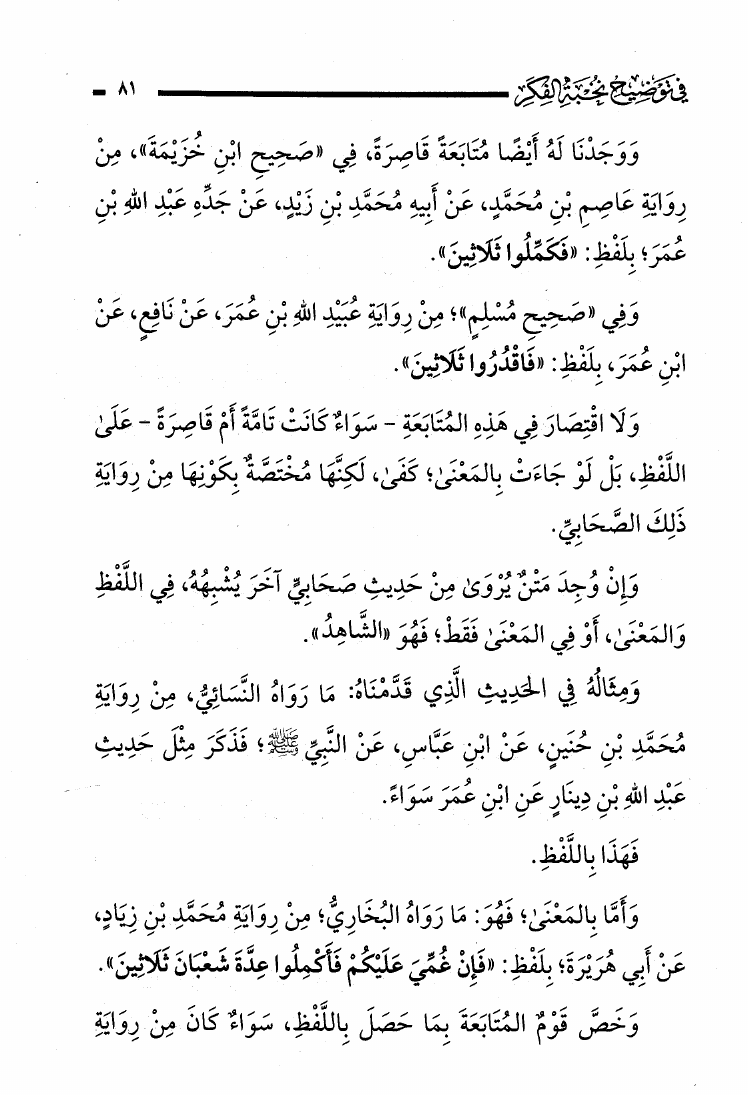 في توضيح نخبة الفكر ٨١
وَوَجَدْنَا لَهُ أَيْضًا مُتَابَعَةً قَاصِرَةً، فِي «صَحِيحِ ابْنِ خُزَيْمَةَ»، مِنْ
رِوَايَةِ عَاصِمِ بْنِ مُحَمَّدٍ، عَنْ أَبِيهِ مُحَمَّدِ بْنِ زَيْدٍ، عَنْ جَدِّهِ عَبْدِ اللهِ بْنِ
عُمَرَ؛ بِلَفْظِ: «فَكَمِّلُوا ثَلَاثِينَ».
وَفِي «صَحِيحِ مُسْلِمٍ»؛ مِنْ رِوَايَةِ عُبَيْدِ اللهِ بْنِ عُمَرَ، عَنْ نَافِعٍ، عَنْ
ابْنِ عُمَرَ، بِلَفْظِ: «فَاقْدُرُوا ثَلَاثِينَ».
وَلَا اقْتِصَارَ فِي هَذِهِ المُتَابَعَةِ - سَوَاءٌ كَانَتْ تَامَّةً أَمْ قَاصِرَةً - عَلَىٰ
اللَّفْظِ، بَلْ لَوْ جَاءَتْ بِالمَعْنَىٰ؛ كَفَىٰ، لَكِنَّهَا مُخْتَصَّةٌ بِكَوْنِهَا مِنْ رِوَايَةِ
ذَلِكَ الصَّحَابِيِّ.
وَإِنْ وُجِدَ مَتْنٌ يُرْوَىٰ مِنْ حَدِيثِ صَحَابِيٍّ آخَرَ يُشْبِهُهُ، فِي اللَّفْظِ
وَالمَعْنَىٰ، أَوْ فِي المَعْنَىٰ فَقَطْ؛ فَهُوَ «الشَّاهِدُ».
وَمِثَالُهُ فِي الحَدِيثِ الَّذِي قَدَّمْنَاهُ: مَا رَوَاهُ النَّسَائِيُّ، مِنْ رِوَايَةِ
مُحَمَّدِ بْنِ حُنَينٍ، عَنْ ابْنِ عَبَّاسٍ، عَنْ النَّبِيِّ ﷺ؛ فَذَكَرَ مِثْلَ حَدِيثِ
عَبْدِ اللهِ بْنِ دِينَارٍ عَنِ ابْنِ عُمَرَ سَوَاءً.
فَهَذَا بِاللَّفْظِ.
وَأَمَّا بِالمَعْنَىٰ؛ فَهُوَ: مَا رَوَاهُ البُخَارِيُّ؛ مِنْ رِوَايَةِ مُحَمَّدِ بْنِ زِيَادٍ،
عَنْ أَبِي هُرَيْرَةَ؛ بِلَفْظِ: «فَإِنْ غُمِّيَ عَلَيْكُمْ فَأَكْمِلُوا عِدَّةَ شَعْبَانَ ثَلَاثِينَ».
وَخَصَّ قَوْمٌ المُتَابَعَةَ بِمَا حَصَلَ بِاللَّفْظِ، سَوَاءٌ كَانَ مِنْ رِوَايَةِ